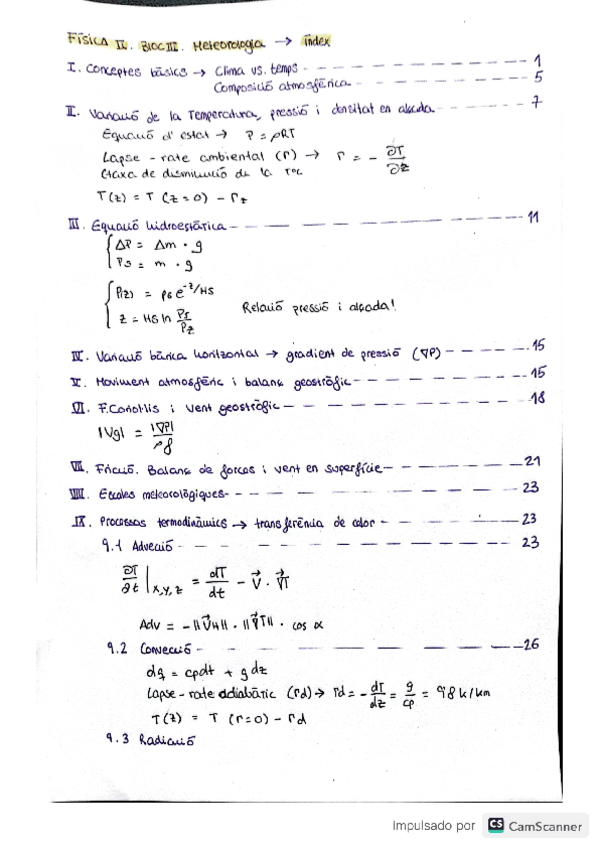 Física II. BLOC III. Meteorologia → índex
I. Conceptes bàsics → Clima vs. temps 1
Composició atmosfèrica 5
II. Variació de la Temperatura, pressió i densitat en alçada 7
Equació d'estat → P = ρRT
Lapse-rate ambiental (Γ) → Γ = - ∂T/∂z
(taxa de disminució de la
T(z) = T (z=0) - Γz
III. Equació hidroestàtica 11
ΔP = Δm · g
Ps = m · g
P(z) = Ps e^-z/Hs
z = Hs ln Ps/Pz Relació pressió i alçada!
IV. Variació bàrica horitzontal → gradient de pressió (∇P) 15
V. Moviment atmosfèric i balanç geostròfic 15
VI. F. Coriolis i vent geostròfic 18
|Vg| = |∇P|/ρf
VII. Fricció. Balanç de forces i vent en superfície 21
VIII. Escales meteorològiques 23
IX. Processos termodinàmics → transferència de calor 23
9.1 Advecció 23
∂T/∂t |x,y,z = dT/dt - V⃗ · ∇⃗T
Adv = -||V⃗H|| · ||∇⃗TH|| · cos α
9.2 Convecció 26
dq = cpdt + g dz
Lapse-rate adiabàtic (Γd) → Γd = - dT/dz = g/cp = 9'8 k/km
T(z) = T (Γ=0) - Γd
9.3 Radiació
Impulsado por CS CamScanner